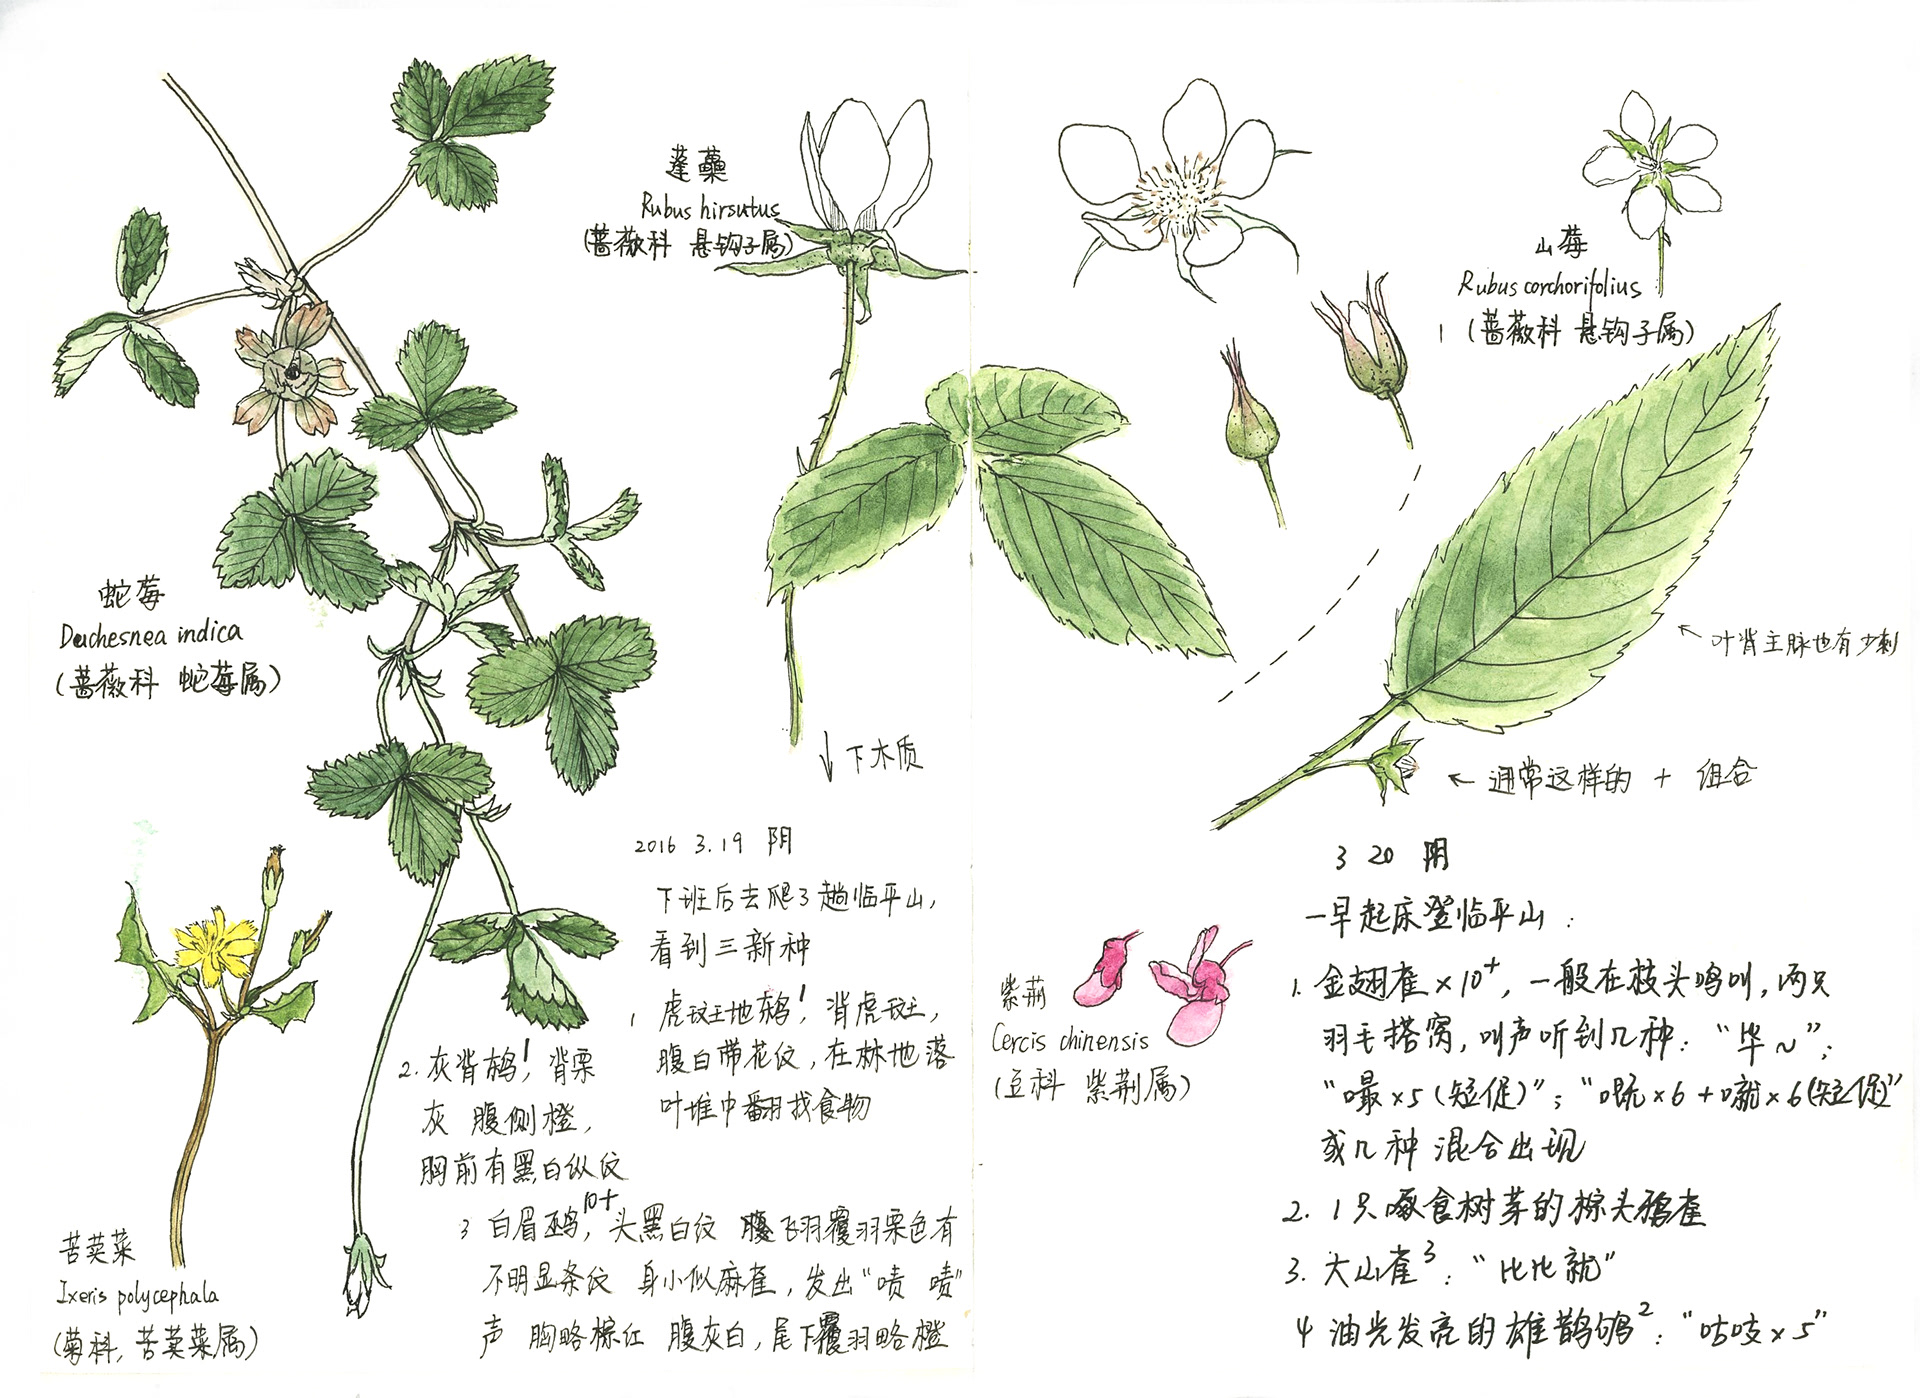 蓬蘽
Rubus hirsutus
(蔷薇科 悬钩子属)
山莓
Rubus corchorifolius
(蔷薇科 悬钩子属)
蛇莓
Duchesnea indica
(蔷薇科 蛇莓属)
↓下木质
← 叶背主脉也有少刺
← 通常这样的 + 组合
2016 3.19 阴
下班后去爬了趟临平山,
看到三新种
1 虎斑地鸫!, 背虎斑,
腹白带花纹, 在林地落
叶堆中翻找食物
2. 灰背鸫!, 背栗
灰 腹侧橙,
胸前有黑白纵纹
3 白眉鹀10+, 头黑白纹 飞羽覆羽栗色有
不明显条纹 身小似麻雀, 发出“啧 啧”
声 胸略棕红 腹灰白, 尾下覆羽略橙
苦荬菜
Ixeris polycephala
(菊科, 苦荬菜属)
紫荆
Cercis chinensis
(豆科 紫荆属)
3 20 阴
一早起床登临平山:
1. 金翅雀×10+, 一般在枝头鸣叫, 两只
羽毛搭窝, 叫声听到几种: “毕~”;
“嘬×5(短促)”; “嘅×6+噈×6(短促)”
或几种 混合出现
2. 1只啄食树芽的棕头鸦雀
3. 大山雀3: “比比就”
4 油光发亮的雄鹊鸲2: “咕吱×5”